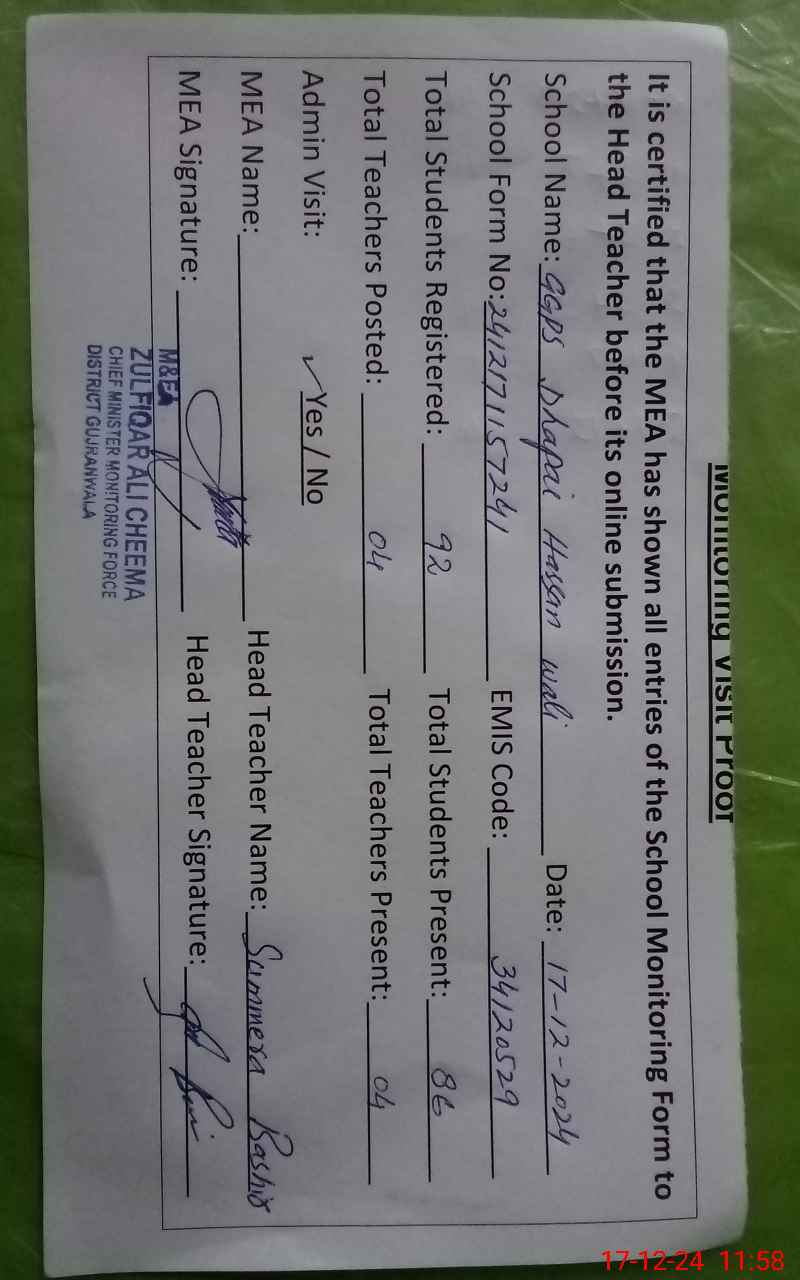 Monitoring Visit Proof
It is certified that the MEA has shown all entries of the School Monitoring Form to
the Head Teacher before its online submission.
School Name: GGPS Dhapai Hassan wali Date: 17-12-2024
School Form No: 2412171157241 EMIS Code: 34120529
Total Students Registered: 92 Total Students Present: 86
Total Teachers Posted: 04 Total Teachers Present: 04
Admin Visit: ✓Yes / No
MEA Name: Head Teacher Name: Summera Rashid
MEA Signature: Head Teacher Signature:
M&EA
ZULFIQAR ALI CHEEMA
CHIEF MINISTER MONITORING FORCE
DISTRICT GUJRANWALA
17-12-24 11:58